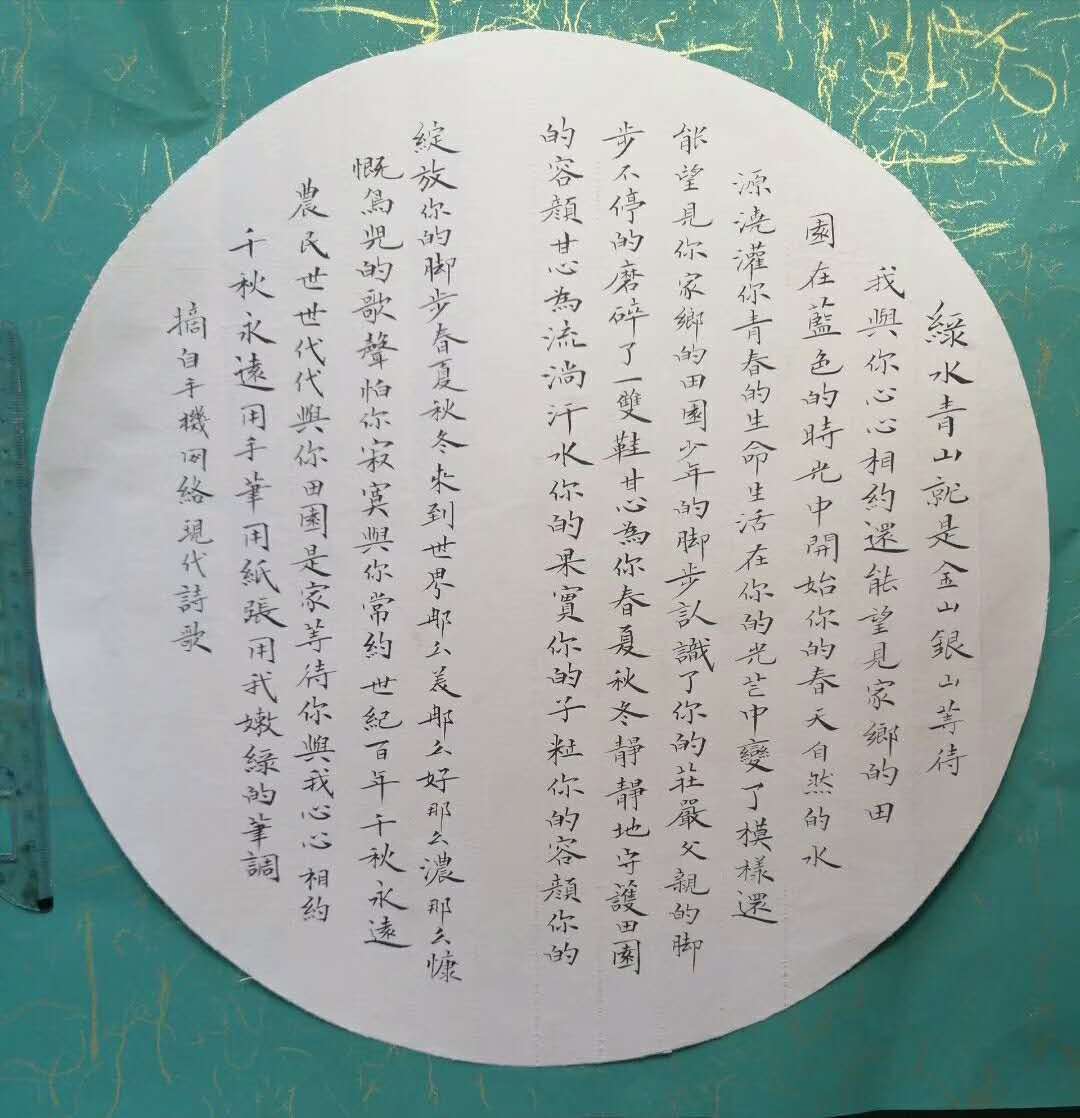 綠水青山就是金山銀山等待
我與你心心相約還能望見家鄉的田
園在藍色的時光中開始你的春天自然的水
源澆灌你青春的生命生活在你的光芒中變了模樣還
能望見你家鄉的田園少年的脚步認識了你的莊嚴父親的脚
步不停的磨碎了一雙鞋甘心為你春夏秋冬靜靜地守護田園
的容顏甘心為流淌汗水你的果實你的子粒你的容顏你的
綻放你的脚步春夏秋冬來到世界那么美那么好那么濃那么慷
慨鳥兒的歌聲怕你寂寞與你常約世紀百年千秋永遠
農民世世代代與你田園是家等待你與我心心相約
千秋永遠用手筆用紙張用我嫩綠的筆調
摘自手機网絡現代詩歌